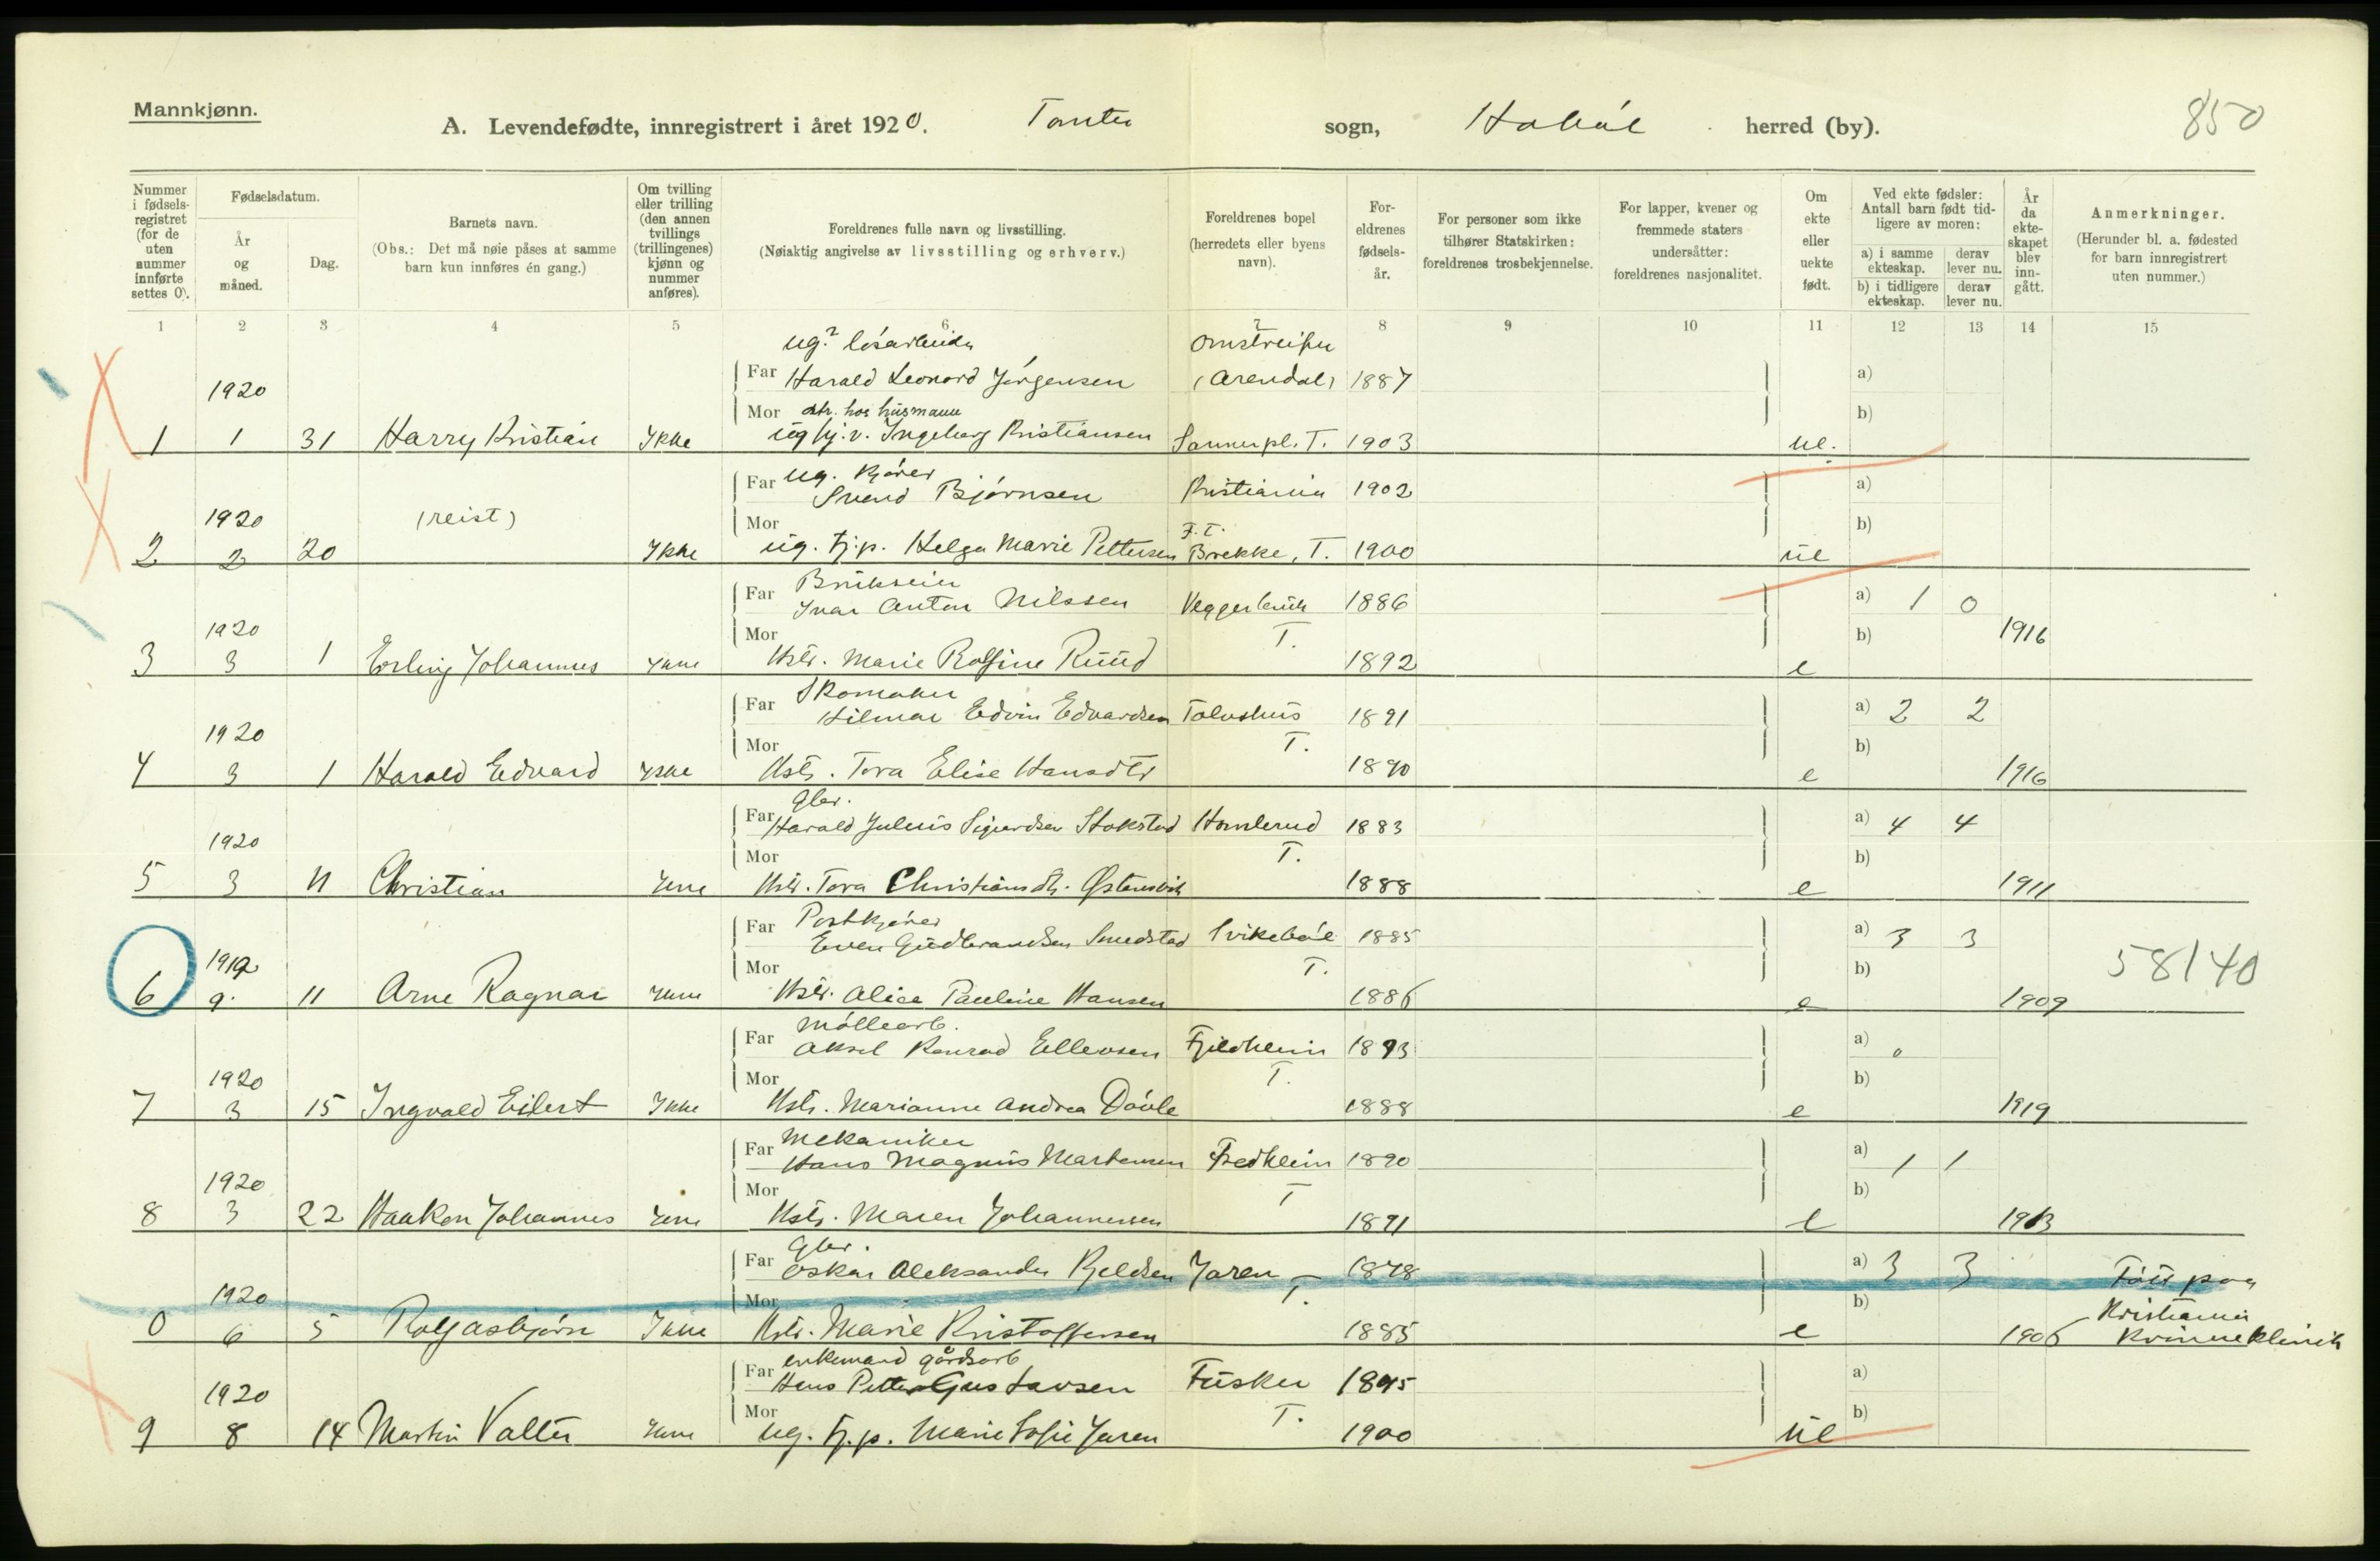 Mannkjønn.
A. Levendefødte, innregistrert i året 1920. Tomter sogn, Hobøl herred (by).
850
Nummer i fødselsregistret (for de uten nummer innførte settes 0).
Fødselsdatum.
År og måned.
Dag.
Barnets navn.
(Obs.: Det må nøie påses at samme barn kun innføres én gang.)
Om tvilling eller trilling (den annen tvillings (trillingenes) kjønn og nummer anføres).
Foreldrenes fulle navn og livsstilling.
(Nøiaktig angivelse av livsstilling og erhverv.)
Foreldrenes bopel (herredets eller byens navn).
Foreldrenes fødselsår.
For personer som ikke tilhører Statskirken: foreldrenes trosbekjennelse.
For lapper, kvener og fremmede staters undersåtter: foreldrenes nasjonalitet.
Om ekte eller uekte født.
Ved ekte fødsler: Antall barn født tidligere av moren:
a) i samme ekteskap. derav lever nu.
b) i tidligere ekteskap. derav lever nu.
År da ekteskapet blev inngått.
Anmerkninger.
(Herunder bl. a. fødested for barn innregistrert uten nummer.)
1 2 3 4 5 6 7 8 9 10 11 12 13 14 15
ug? løsarbeider omstreifer
Far Harald Leonard Jørgensen (Arendal) 1887 a)
1920
Mor dtr. hos husmann b)
1 1 31 Harry Kristian Ikke ug hj. v. Ingeborg Kristiansen Sannerpl. T. 1903 ue.
Far ug. kjører
Svend Bjørnsen Kristiania 1902 a)
1920 (reist) Mor F. T. b)
2 2 20 Ikke ug. tj.p. Helga Marie Pettersen Brekke, T. 1900 ue
Far Brukseier
Ivar Anton Nilssen 1886 a) 1 0
1920 Mor T. b) 1916
3 3 1 Erling Johannes Ikke Hstr. Marie Rolfine Ruud 1892 e
Far Skomaker
Hilmar Edvin Edvardsen 1891 a) 2 2
1920 Mor T. b)
4 3 1 Harald Edvard Ikke Hstr. Tora Elise Hansdtr 1890 e 1916
Far Gbr.
Harald Julius Sigurdsen Stokstad Homlerud 1883 a) 4 4
1920 Mor T. b)
5 3 11 Christian Ikke Hstr. Tora Christiansdtr. 1888 e 1911
Far Postkjører
Even Gudbrandsen Smedstad Svikebøl 1885 a) 3 3
1919 Mor T. b) 58140
6 9. 11 Arne Ragnar Ikke Hstr. Alice Pauline Hansen 1886 e 1909
Far Møllearb.
Aksel Konrad Ellevsen Fjeldheim 1893 a) 0
1920 Mor T. b)
7 3 15 Ingvald Eilert Ikke Hstr. Marianne Andrea Døvle 1888 e 1919
Far Mekaniker
Hans Magnus Martensen Fredheim 1890 a) 1 1
1920 Mor T b)
8 3 22 Haakon Johannes Ikke Hstr. Maren Johannessen 1891 e 1913
Far Gbr.
Oskar Aleksander Kjeldsen Jaren 1878 a) 3 3 Født paa
1920 Mor T. b) Kristiania
0 6 5 Rolf Asbjørn Ikke Hstr. Marie Kristoffersen 1885 e 1906 Kvinneklinik
Far enkemand gårdsarb
Hans Petter Gustavsen Fusker 1895 a)
1920 Mor T. b)
9 8 14 Martin Valter Ikke ug. tj.p. Marie Sofie Jaren 1900 ue